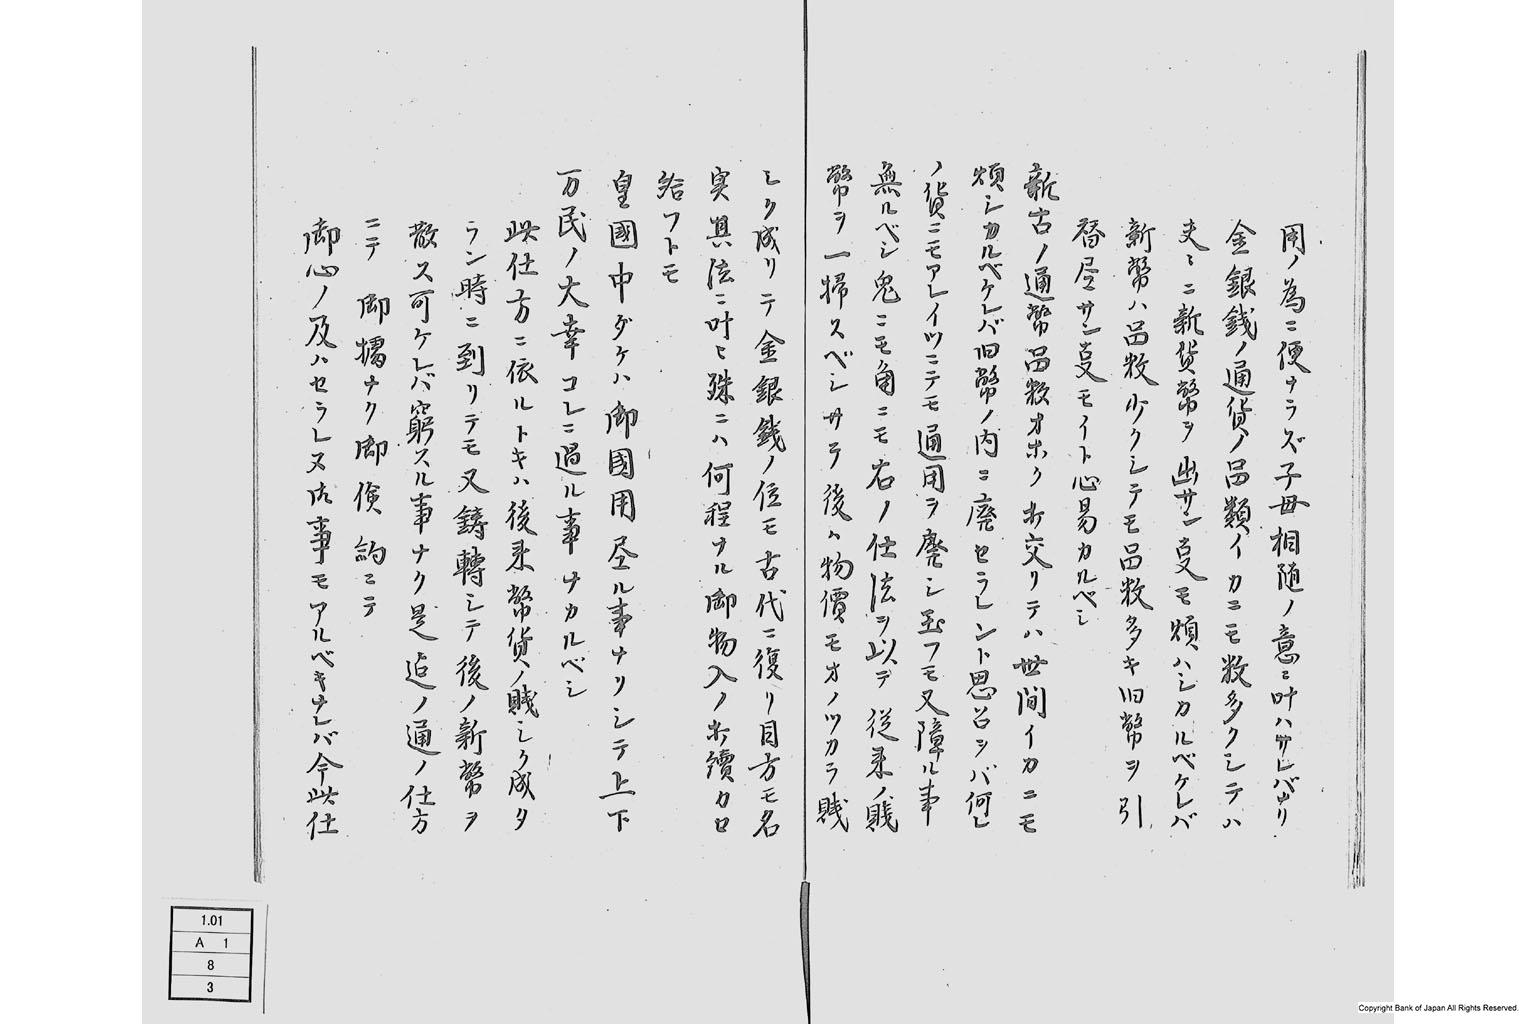 用ノ為ニ便ナラズ子母相随ノ意ニ叶ハサレバナリ
金銀銭ノ通貨ノ品類イカニモ数多クシテハ
夫々ニ新貨幣ヲ出サン夏モ煩ハシカルベケレバ
新幣ハ品数少クシテモ品数多キ旧幣ヲ引
替尽サン夏モイト心易カルベシ
新古ノ通幣品数オホク打交リテハ世間イカニモ
煩シカルベケレバ旧幣ノ内ニ廃セラレント思召ヲバ何レ
ノ貨ニモアレイツニテモ通用ヲ廃シ玉フモ又障ル事
無ルベシ鬼ニモ角ニモ右ノ仕法ヲ以テ従来ノ賎
幣ヲ一掃スベシサテ後ハ物價モオノツカラ賎
シク成リテ金銀銭ノ位モ古代ニ復リ目方モ名
実眞法ニ叶ヒ殊ニハ何程ナル御物入ノ打續カセ
給フトモ
皇國中ダケハ御國用尽ル事ナリシテ上下
万民ノ大幸コレニ過ル事ナカルベシ
此仕方ニ依ルトキハ後来幣貨ノ賎シク成タ
ラン時ニ到リテモ又鋳轉シテ後ノ新幣ヲ
散ス可ケレバ窮スル事ナク是迄ノ通ノ仕方
ニテ御猾ナク御儉約ニテ
御心ノ及ハセラレヌ御事モアルベキナレバ今此仕
1.01
A 1
8
3
Copyright Bank of Japan All Rights Reserved.